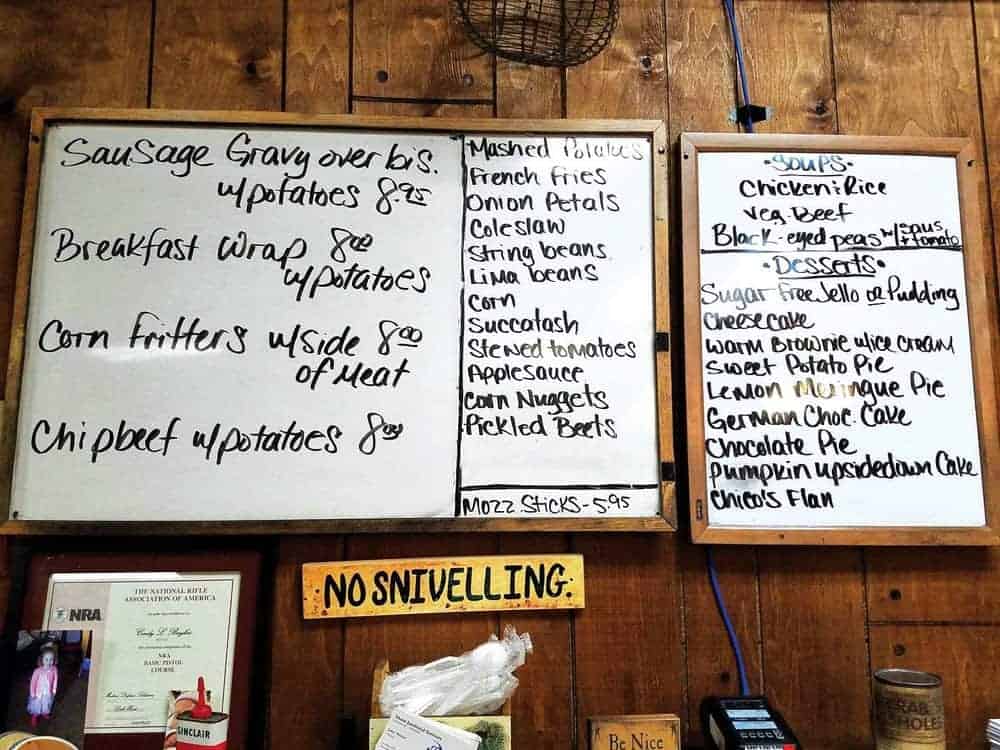 Sausage Gravy over bis.
w/potatoes 8.95
Breakfast Wrap 8.00
w/potatoes
Corn Fritters w/side 8.00
of Meat
Chipbeef w/potatoes 8.00
Mashed Potatoes
French Fries
Onion Petals
Coleslaw
String beans
Lima beans
Corn
Succatash
Stewed tomatoes
Applesauce
Corn Nuggets
Pickled Beets
Mozz Sticks - 5.95
• Soups •
Chicken & Rice
Veg. Beef
Black-eyed peas w/
+ tomato
• Desserts •
Sugar Free Jello or Pudding
Cheesecake
Warm Brownie w/ice cream
Sweet Potato Pie
Lemon Meringue Pie
German Choc. Cake
Chocolate Pie
Pumpkin upsidedown Cake
Chico's Flan
NO SNIVELLING.
NRA
THE NATIONAL RIFLE
ASSOCIATION OF AMERICA
NRA
BASIC PISTOL
COURSE
SINCLAIR
Be Nice